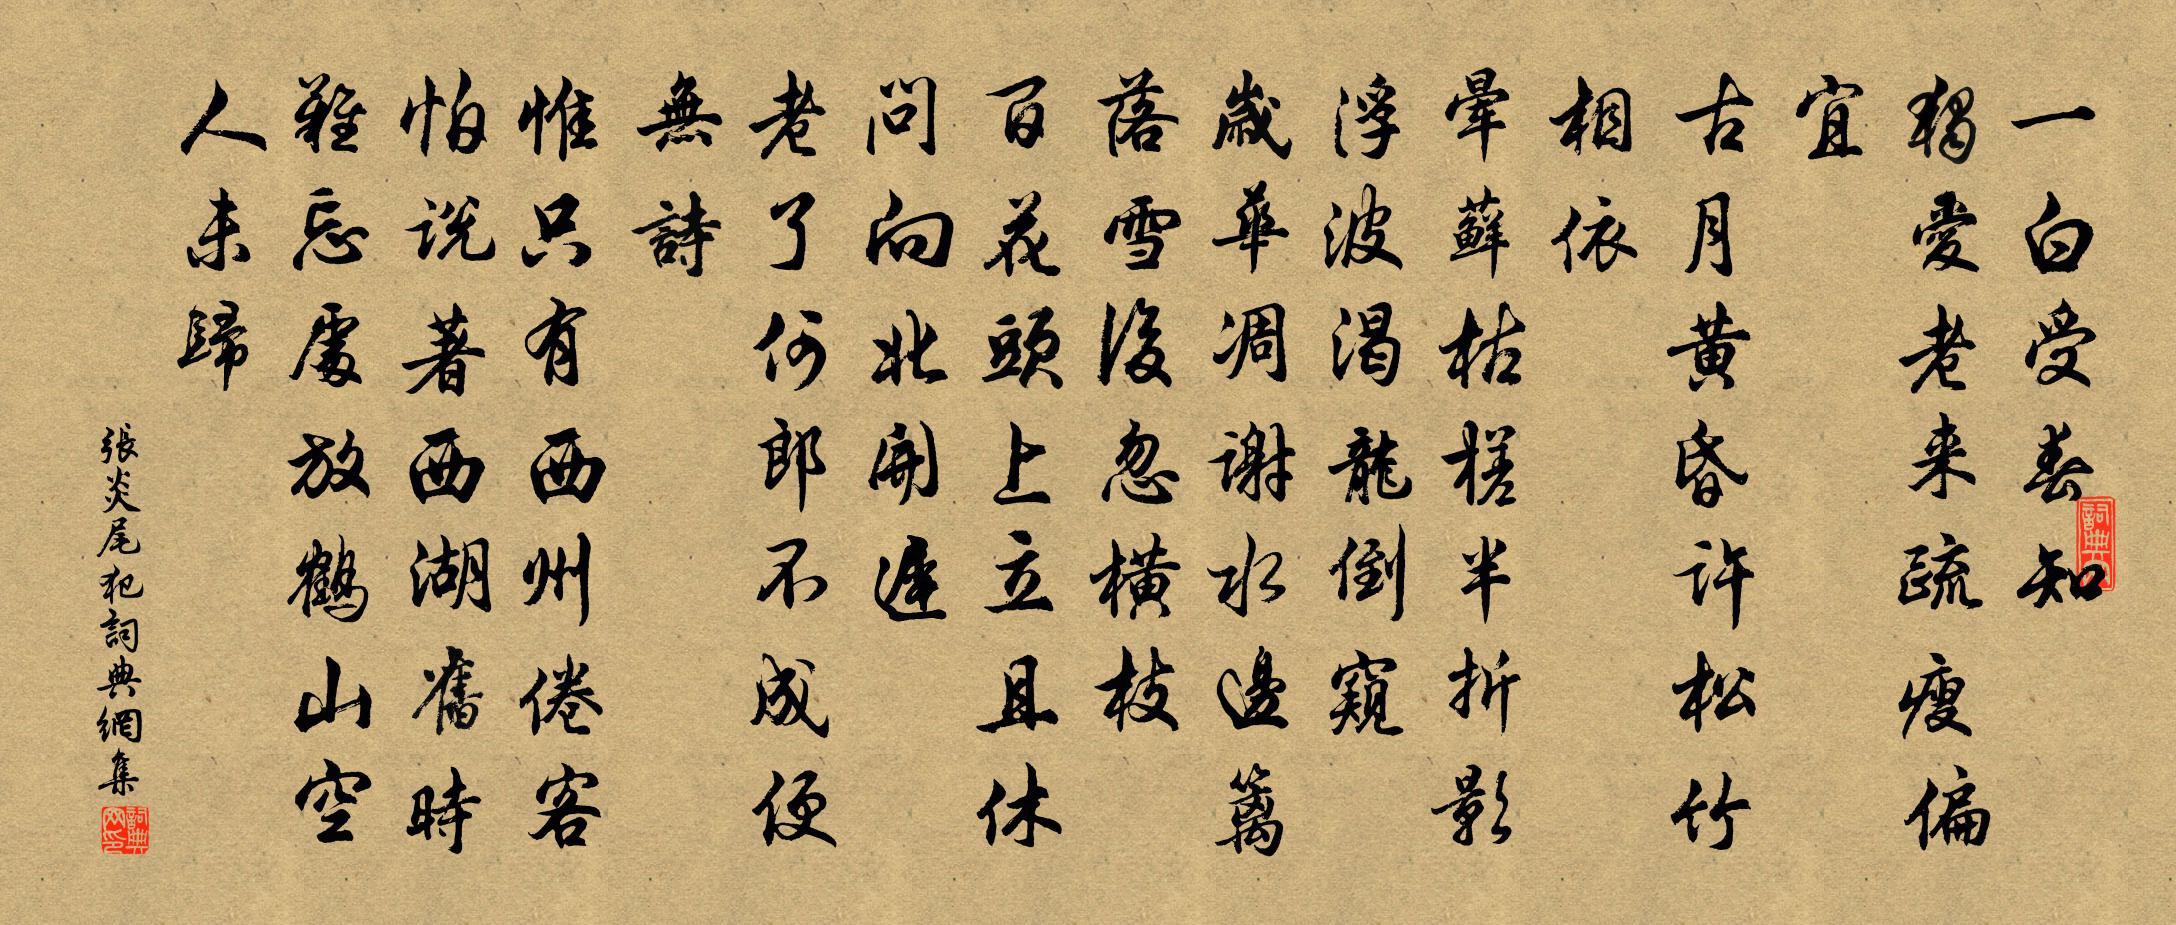 一白受春知
獨愛老来疏瘦偏
宜
古月黃昏許松竹
相依
暈蘚枯槎半折影
浮波渴龍倒窺
歲華凋謝水邊籬
落雪後忽橫枝
百花頭上立且休
問向北開遲
老了何郎不成便
無詩
惟只有西州倦客
怕說著西湖舊時
難忘處放鶴山空
人未歸
張炎尾犯詞典網集
詞典
詞典網印